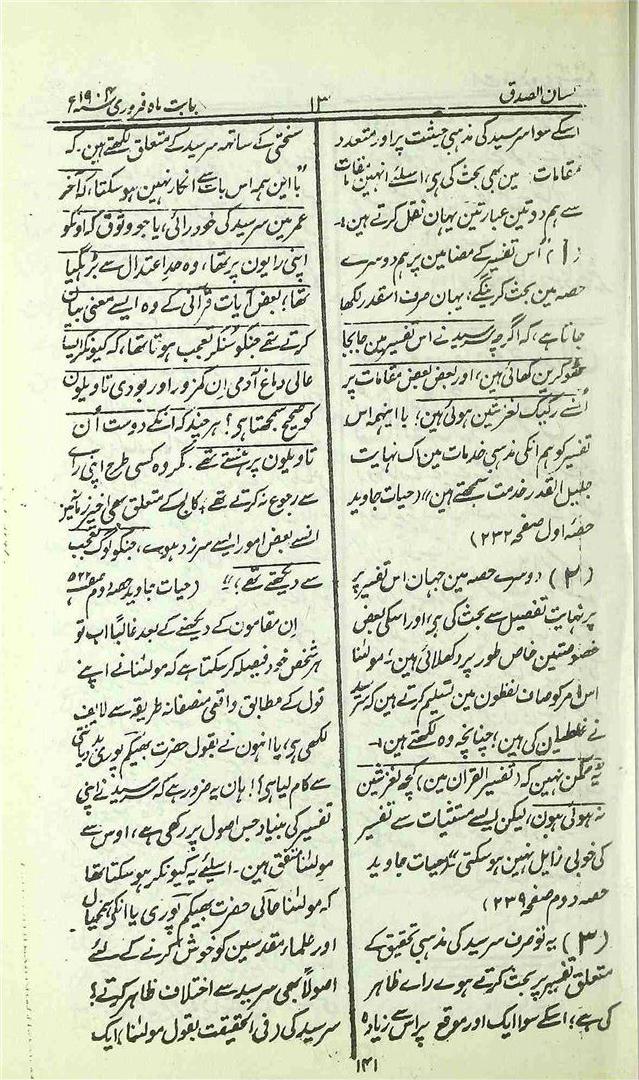 لسان الصدق ۱۳ بابت ماہ فروری ۱۹۰۴ء
اسکے سوا سرسید کی مذہبی حیثیت پر اور متعدد
مقامات مین بھی بحث کی ہی، اسلئے انہین مقامات
سے ہم دو تین عبارتین یہان نقل کرتے ہین۔
(۱) "اُس تفسیر کے مضامین پر ہم دوسرے
حصہ مین بحث کرینگے، یہان صرف اسقدر لکھا
جاتا ہے، کہ اگرچہ سرسید نے اس تفسیر مین جابجا
ٹھوکرین کھائی ہین، اور بعض بعض مقامات پر
اُنسے رکیک لغزشین ہوئی ہین؛ بااینہمہ اس
تفسیر کو ہم انکی مذہبی خدمات مین اک نہایت
جلیل القدر خدمت سمجھتے ہین" (حیات جاوید
حصہ اول صفحہ ۲۳۲)
(۲) دوسرے حصہ مین جہان اس تفسیر پر
پر نہایت تفصیل سے بحث کی ہی، اور اسکی بعض
خصوصتین خاص طور پر دکھلائی ہین، مولٰنا
اس امر کو صاف لفظون مین تسلیم کرتے ہین کہ سرسید
نے غلطیان کی ہین؛ چنانچہ وہ لکھتے ہین۔
"یہ ممکن نہین کہ (تفسیر القرآن مین) کچھ لغزشین
نہ ہوئی ہون، لیکن ایسے مستثنیات سے تفسیر
کی خوبی زایل نہین ہو سکتی" (حیات جاوید
حصہ دوم صفحہ ۲۳۹)
(۳) یہ تو صرف سرسید کی مذہبی تحقیق کے
متعلق تفسیر پر بحث کرتے ہوے راے ظاہر
کی ہے، اسکے سوا ایک اور موقع پر اس سے زیادہ
سختی کے ساتھہ سرسید کے متعلق لکھتے ہین۔ کہ
"با این ہمہ اس بات سے انکار نہین ہو سکتا، کہ آخر
عمر مین سرسید کی خود رائی، یا جو وثوق کہ اونکو
اپنی رایون پر تھا، وہ حد اعتدال سے بڑہ گیا
تھا؛ بعض آیات قرآنی کے وہ ایسے معنی بیان
کرتے تھے جنکو سُنکر تعجب ہوتا تھا، کہ کیونکر ایسا
عالی دماغ آدمی اِن کمزور اور بودی تاویلون
کو صحیح سمجھتا ہی؟ ہر چند کہ انکے دوست اُن
تاویلون پر ہنستے تھے۔ مگر وہ کسی طرح اپنی راے
سے رجوع نہ کرتے تھے؛ کالج کے متعلق بھی اخیر زمانہ مین
انسے بعض امور ایسے سرزد ہوے، جنکو لوگ تعجب
سے دیکھتے تھے؛" (حیات جاوید حصہ دوم صفحہ ۵۲۲
اِن مقامون کے دیکھنے کے بعد غالباً اب تو
ہر شخص خود فیصلہ کر سکتا ہے کہ مولٰنا نے اپنے
قول کے مطابق واقعی منصفانہ طریقہ سے لایف
لکھی ہی، یا انہون نے بقول حضرت بھیکم پوری بددیانتی
سے کام لیا ہی؟! ہان یہ ضرور ہے کہ سرسید نے اپنی
تفسیر کی بنیاد جس اصول پر رکھی ہے، اوس سے
مولٰنا متفق ہین۔ اسلئے یہ کیونکر ہو سکتا تھا
کہ مولٰنا حالی حضرت بھیکم پوری یا انکی ہمخیال
اور علماء مقدسین کو خوش کرنے کے لئے
اصولاً بھی سرسید سے اختلاف ظاہر کرتے؟
سرسید کی (فی الحقیقت بقول مولٰنا) ایک
۱۴۱